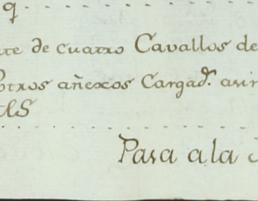 q
te de cuatro Cavallos de
otros añexos Cargad.s asi
Para a la